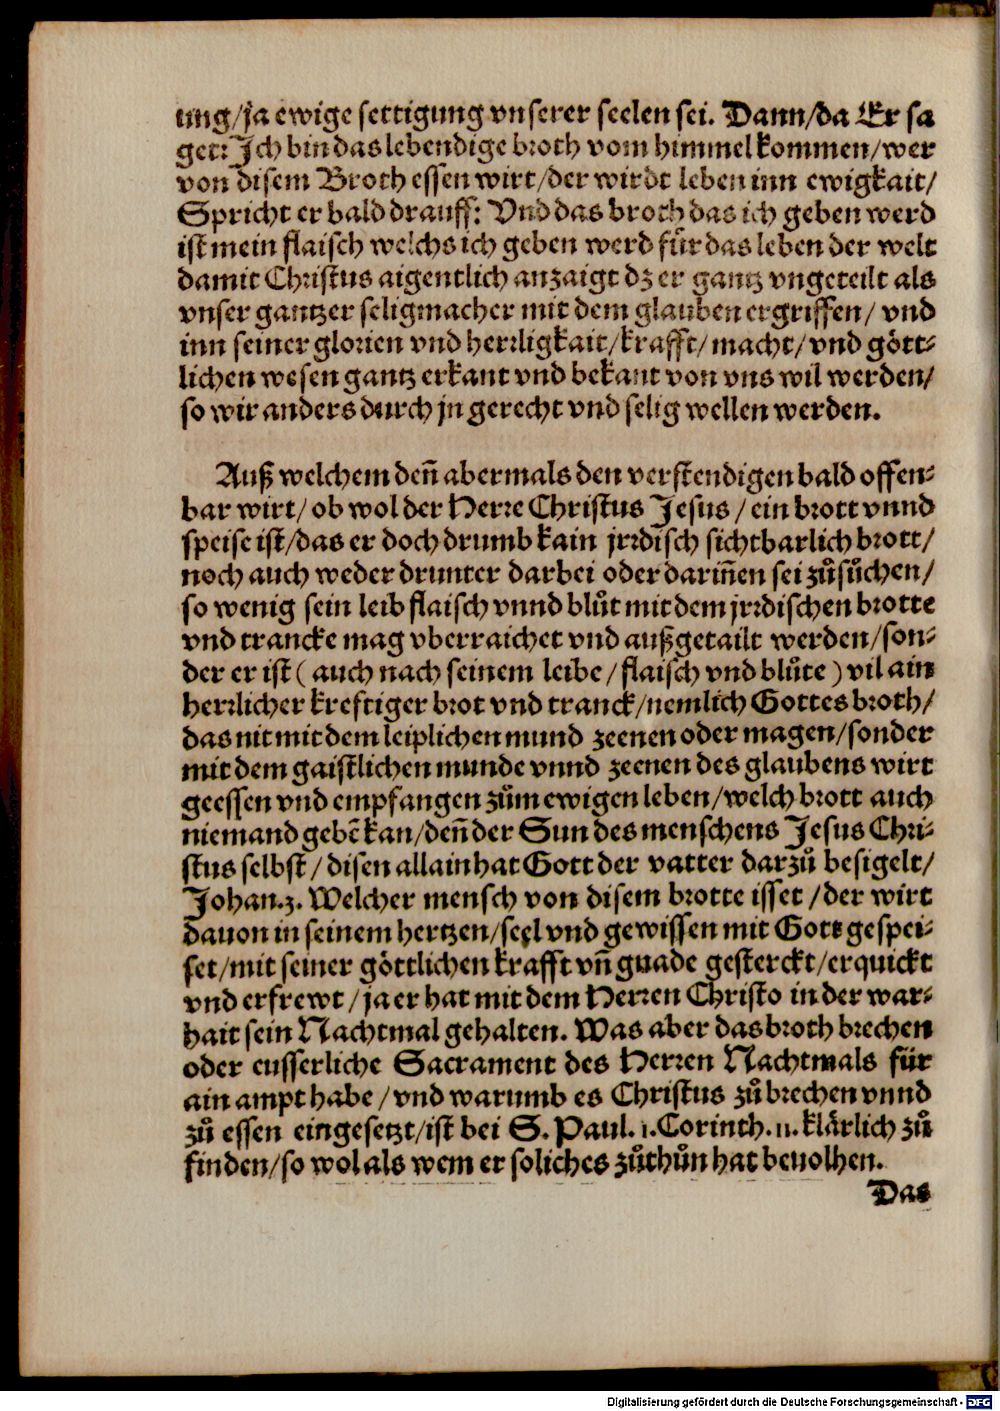 ung/ja ewige settigung vnserer seelen sei. Dann/da Er sa
get: Jch bin das lebendige broth vom himmel kommen/wer
von disem Broth essen wirt/der wirdt leben inn ewigkait/
Spricht er bald drauff: Vnd das broth das ich geben werd
ist mein flaisch welchs ich geben werd fůr das leben der welt
damit Christus aigentlich anzaigt dz er gantz vngeteilt als
vnser gantzer seligmacher mit dem glauben ergriffen/ vnd
inn seiner glorien vnd herrligkait/krafft/macht/vnd gött⸗
lichen wesen gantz erkant vnd bekant von vns wil werden/
so wir anders durch jn gerecht vnd selig wellen werden.
Auß welchem den̄ abermals den verstendigen bald offen⸗
bar wirt/ ob wol der Herre Christus Jesus / ein brott vnnd
speise ist/das er doch drumb kain jrrdisch sichtbarlich brott/
noch auch weder drunter darbei oder darin̄en sei zůsůchen/
so wenig sein leib flaisch vnnd blůt mit dem jrrdischen brotte
vnd trancke mag vberraichet vnd außgetailt werden/son⸗
der er ist ( auch nach seinem leibe / flaisch vnd blůte ) vil ain
herrlicher kreftiger brot vnd tranck/nemlich Gottes broth/
das nit mit dem leiplichen mund zeenen oder magen/sonder
mit dem gaistlichen munde vnnd zeenen des glaubens wirt
geessen vnd empfangen zům ewigen leben/welch brott auch
niemand gebē kan/den̄ der Sun des menschens Jesus Chri⸗
stus selbst / disen allain hat Gott der vatter darzů besigelt/
Johan.3. Welcher mensch von disem brotte isset /der wirt
dauon in seinem hertzen/seel vnd gewissen mit Gott gespei⸗
set/mit seiner göttlichen krafft vn̄ gnade gesterckt/erquickt
vnd erfrewt / ja er hat mit dem Herren Christo in der war⸗
hait sein Nachtmal gehalten. Was aber das broth brechen
oder eusserliche Sacrament des Herren Nachtmals für
ain ampt habe / vnd warumb es Christus zů brechen vnnd
zů essen eingesetzt/ist bei S. Paul. 1. Corinth. 11. klärlich zů
finden/so wol als wem er soliches zůthůn hat beuolhen.
Das
Digitalisierung gefördert durch die Deutsche Forschungsgemeinschaft - DFG